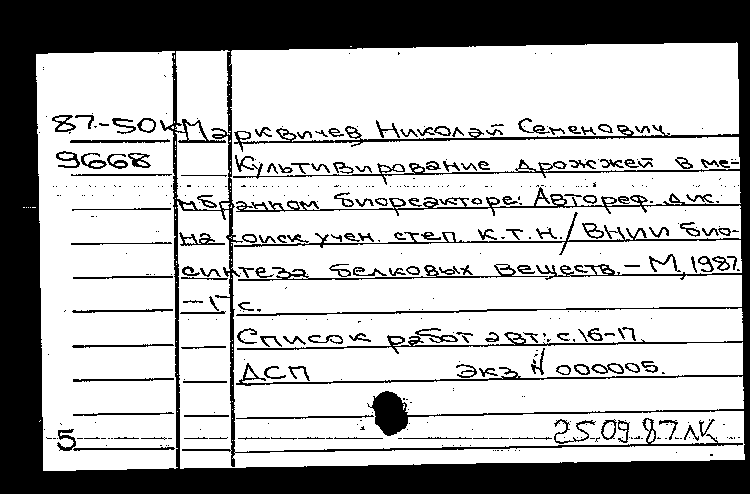 87-50к Марквичев Николай Семенович.
9668 Культивирование дрожжей в ме-
мбранном биореакторе: Автореф. дис.
на соиск учен. степ. к.т.н. / ВНИИ био-
синтеза белковых веществ. - М, 1987.
- с.
Список работ авт.: с. 16-17.
ДСП Экз N 000005.
5 25.09.87 ЛК